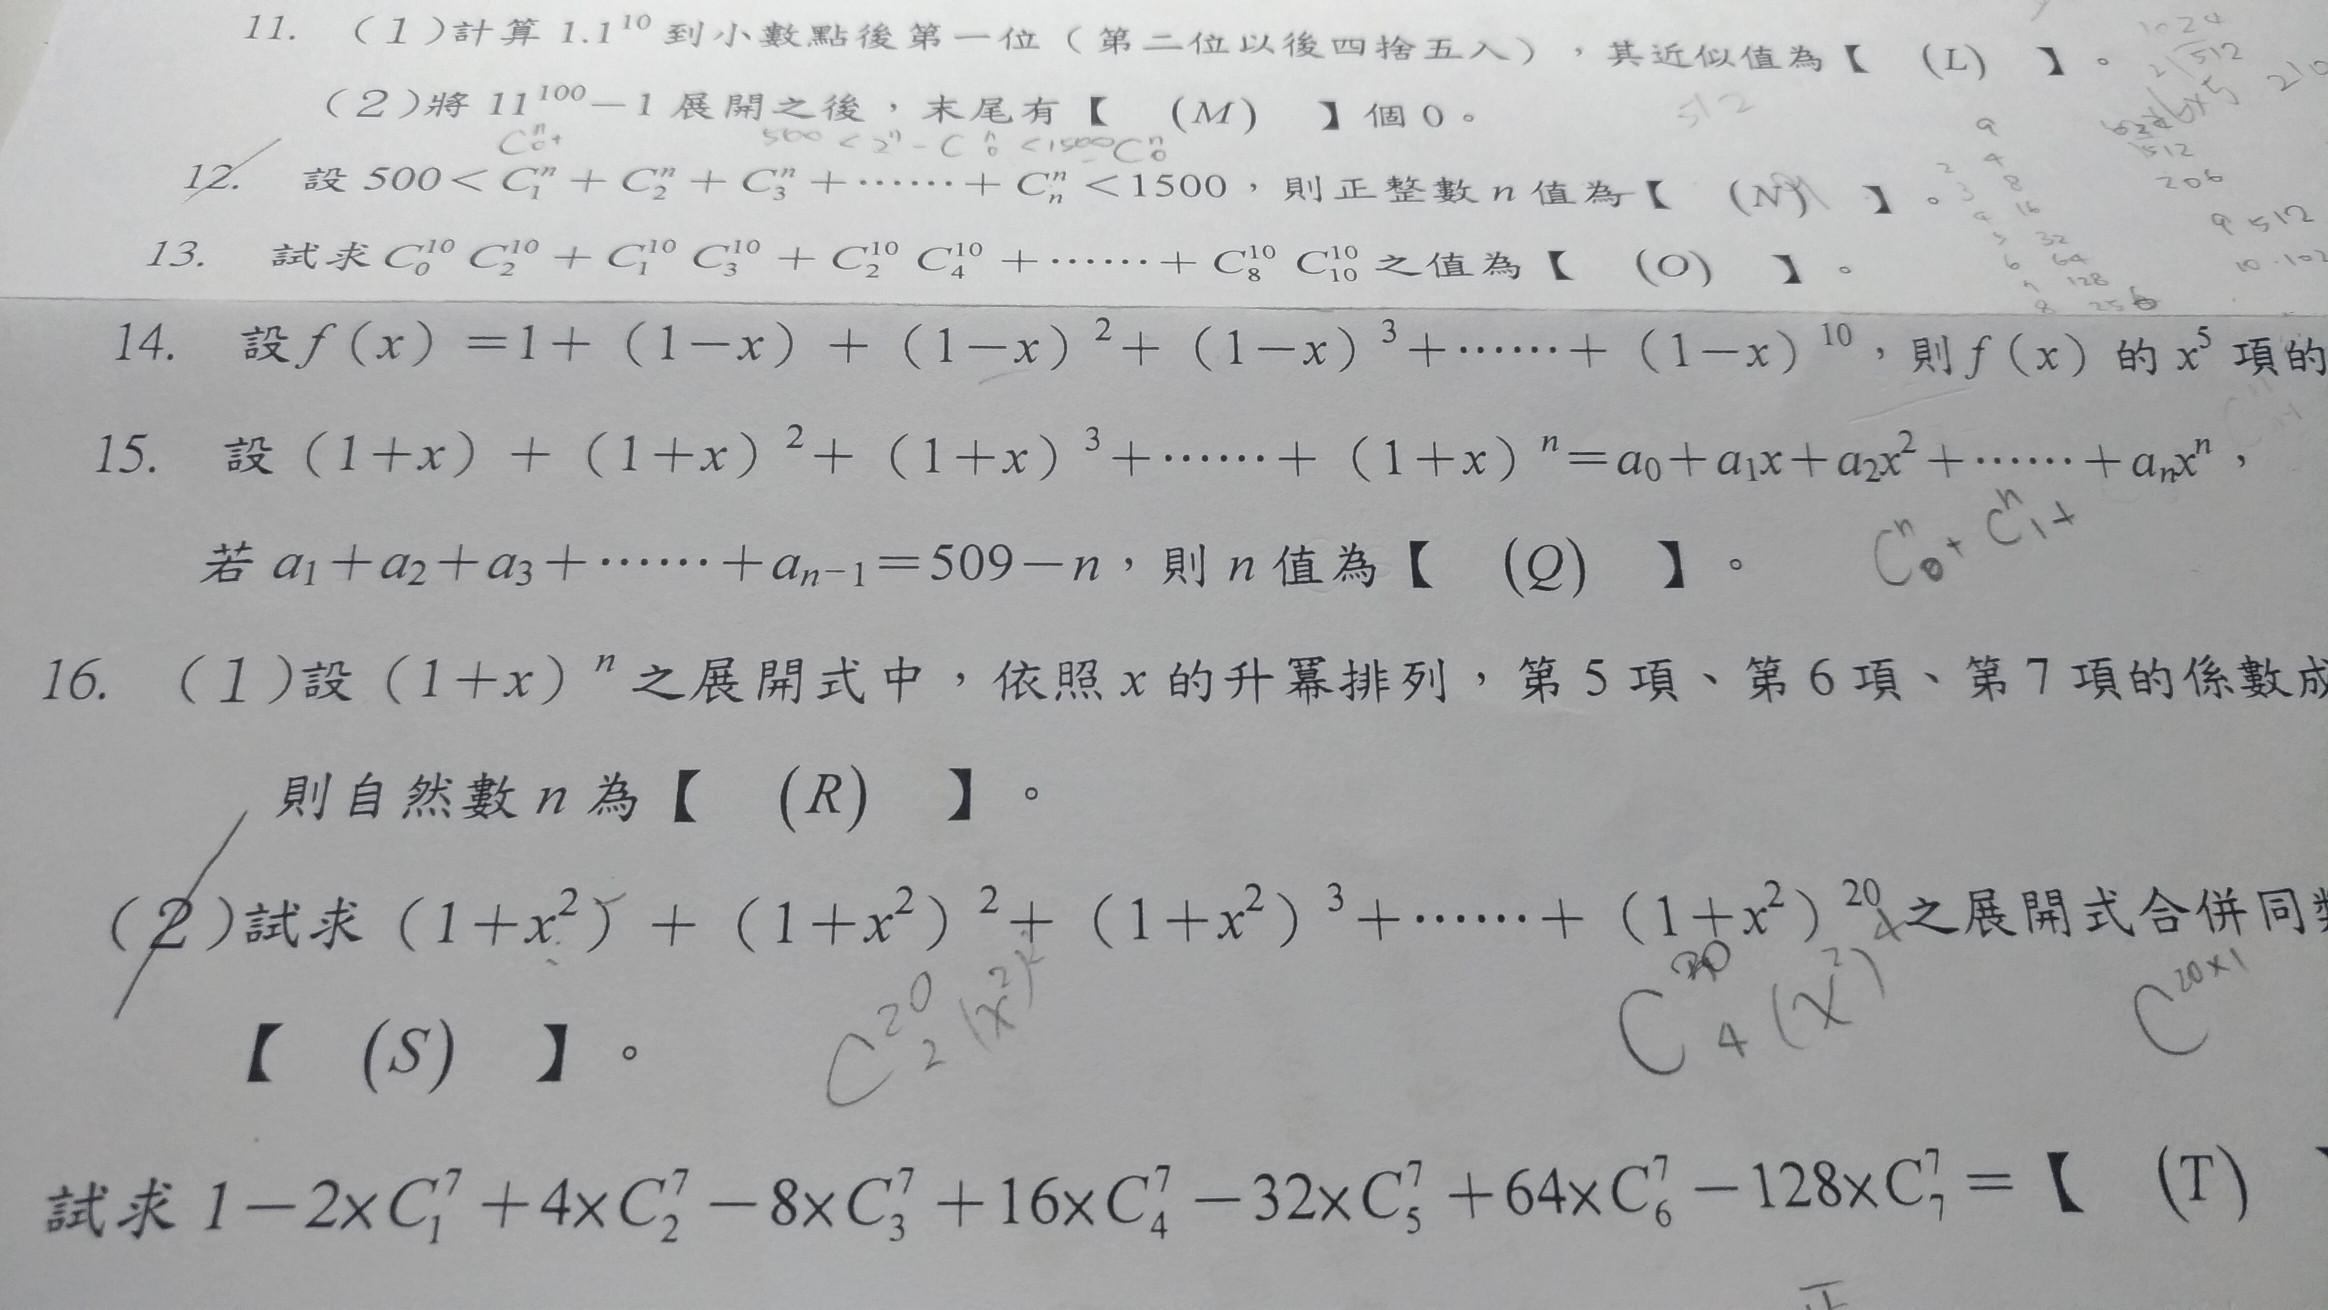 11. (1)計算 1.1¹⁰ 到小數點後第一位(第二位以後四捨五入),其近似值為【 (L) 】。
(2)將 11¹⁰⁰－1 展開之後,末尾有【 (M) 】個 0。
500 < 2ⁿ - C₀ⁿ < 1500 - C₀ⁿ
12. 設 500 < C₁ⁿ + C₂ⁿ + C₃ⁿ + …… + Cₙⁿ < 1500,則正整數 n 值為【 (N) 】。
13. 試求 C₀¹⁰ C₂¹⁰ + C₁¹⁰ C₃¹⁰ + C₂¹⁰ C₄¹⁰ + …… + C₈¹⁰ C₁₀¹⁰ 之值為【 (O) 】。
14. 設 f(x)=1+(1－x)+(1－x)²+(1－x)³+……+(1－x)¹⁰,則 f(x)的 x⁵ 項的
15. 設(1+x)+(1+x)²+(1+x)³+……+(1+x)ⁿ=a₀+a₁x+a₂x²+……+aₙxⁿ,
C₀ⁿ + C₁ⁿ +
若 a₁+a₂+a₃+……+aₙ₋₁=509－n,則 n 值為【 (Q) 】。
16. (1)設(1+x)ⁿ 之展開式中,依照 x 的升冪排列,第 5 項、第 6 項、第 7 項的係數成
則自然數 n 為【 (R) 】。
(2)試求(1+x²)+(1+x²)²+(1+x²)³+……+(1+x²)²⁰之展開式合併同
【 (S) 】。
C₂²⁰ (x²)
C₄ (x²)⁴
試求 1－2×C₁⁷+4×C₂⁷－8×C₃⁷+16×C₄⁷－32×C₅⁷+64×C₆⁷－128×C₇⁷=【 (T)